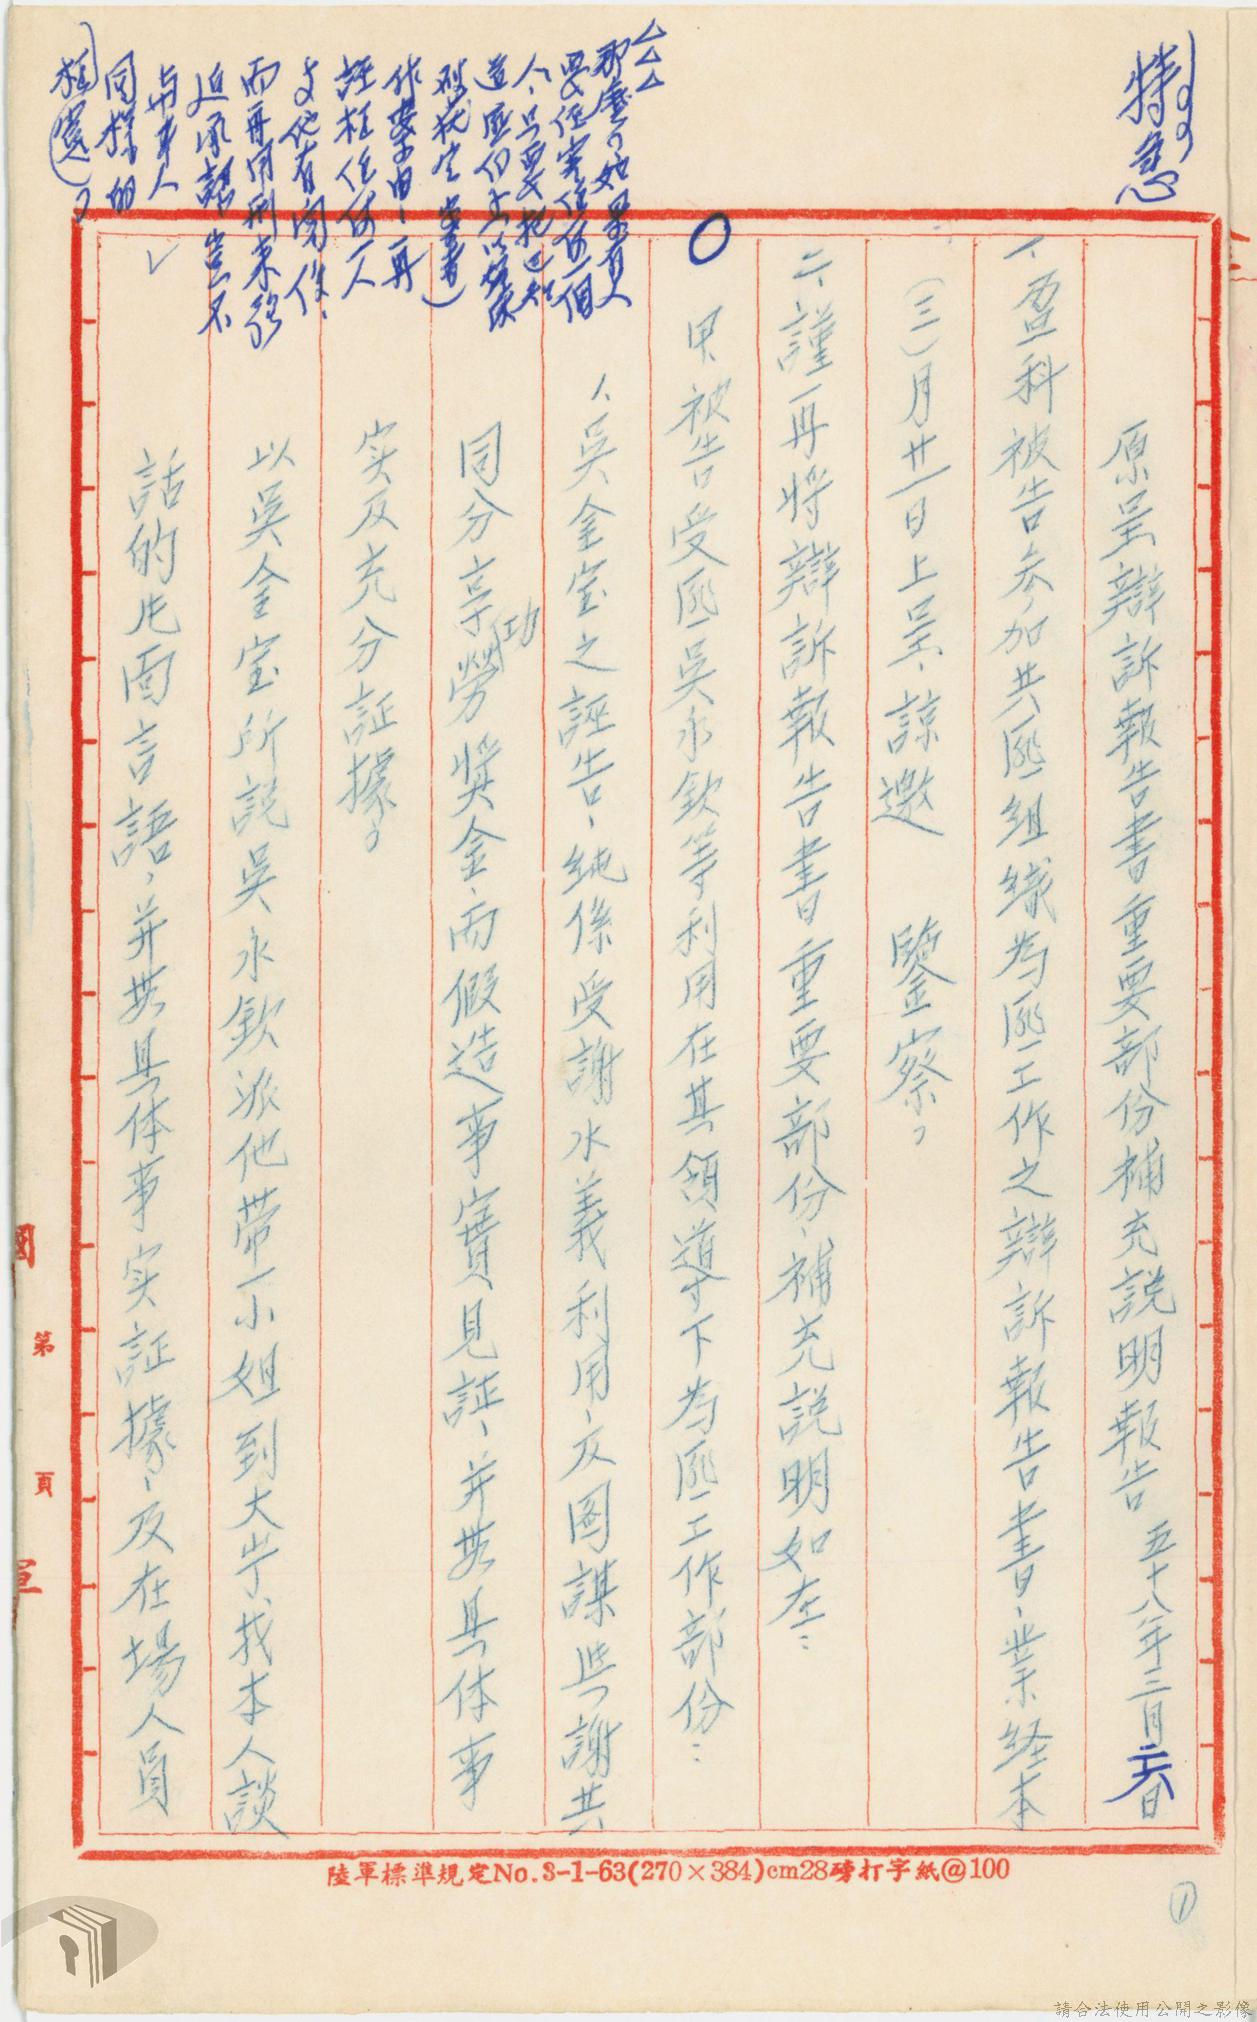 特急
原呈辯訴報告書重要部份補充說明報告 五十八年三月六日
一、盈科被告參加共匪組織為匪工作之辯訴報告書、業経本
(三)月廿一日上呈、諒邀 鑒察。
二、謹再將辯訴報告書重要部份、補充說明如左：
甲、被告受匪吳永欽等利用在其領導下為匪工作部份：
1、吳金宝之誣告、純係受謝水義利用、及圖謀與謝共
同分享功勞獎金、而假造事實見証、并無具体事
实及充分証據。
以吳金宝所説吳永欽派他帶一小姐到大崗找本人談
話的片面言語、并無具体事实証據、及在場人員
△△△
那麼、如果有人
要任害任何一個
人、只要把
造匪仍去以
作要求由、再
誣枉任何一人
與他有關係、
而再用刑來強
迫承認豈不
與本人
同樣的
枉(冤)。
第 頁
陸軍標準規定No.3-1-63(270×384)cm28磅打字紙@100
①
請合法使用公開之影像